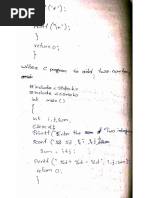 printf("*");
}
printf("\n");
}
return 0;
}
write C program to add two
#include<stdio.h>
#include<conio.h>
int main()
{
int i, j, sum;
clrscr();
printf("Enter the Two
scanf("%d %d",
sum = i+j;
printf("%d + %d = %d",
return 0;
}